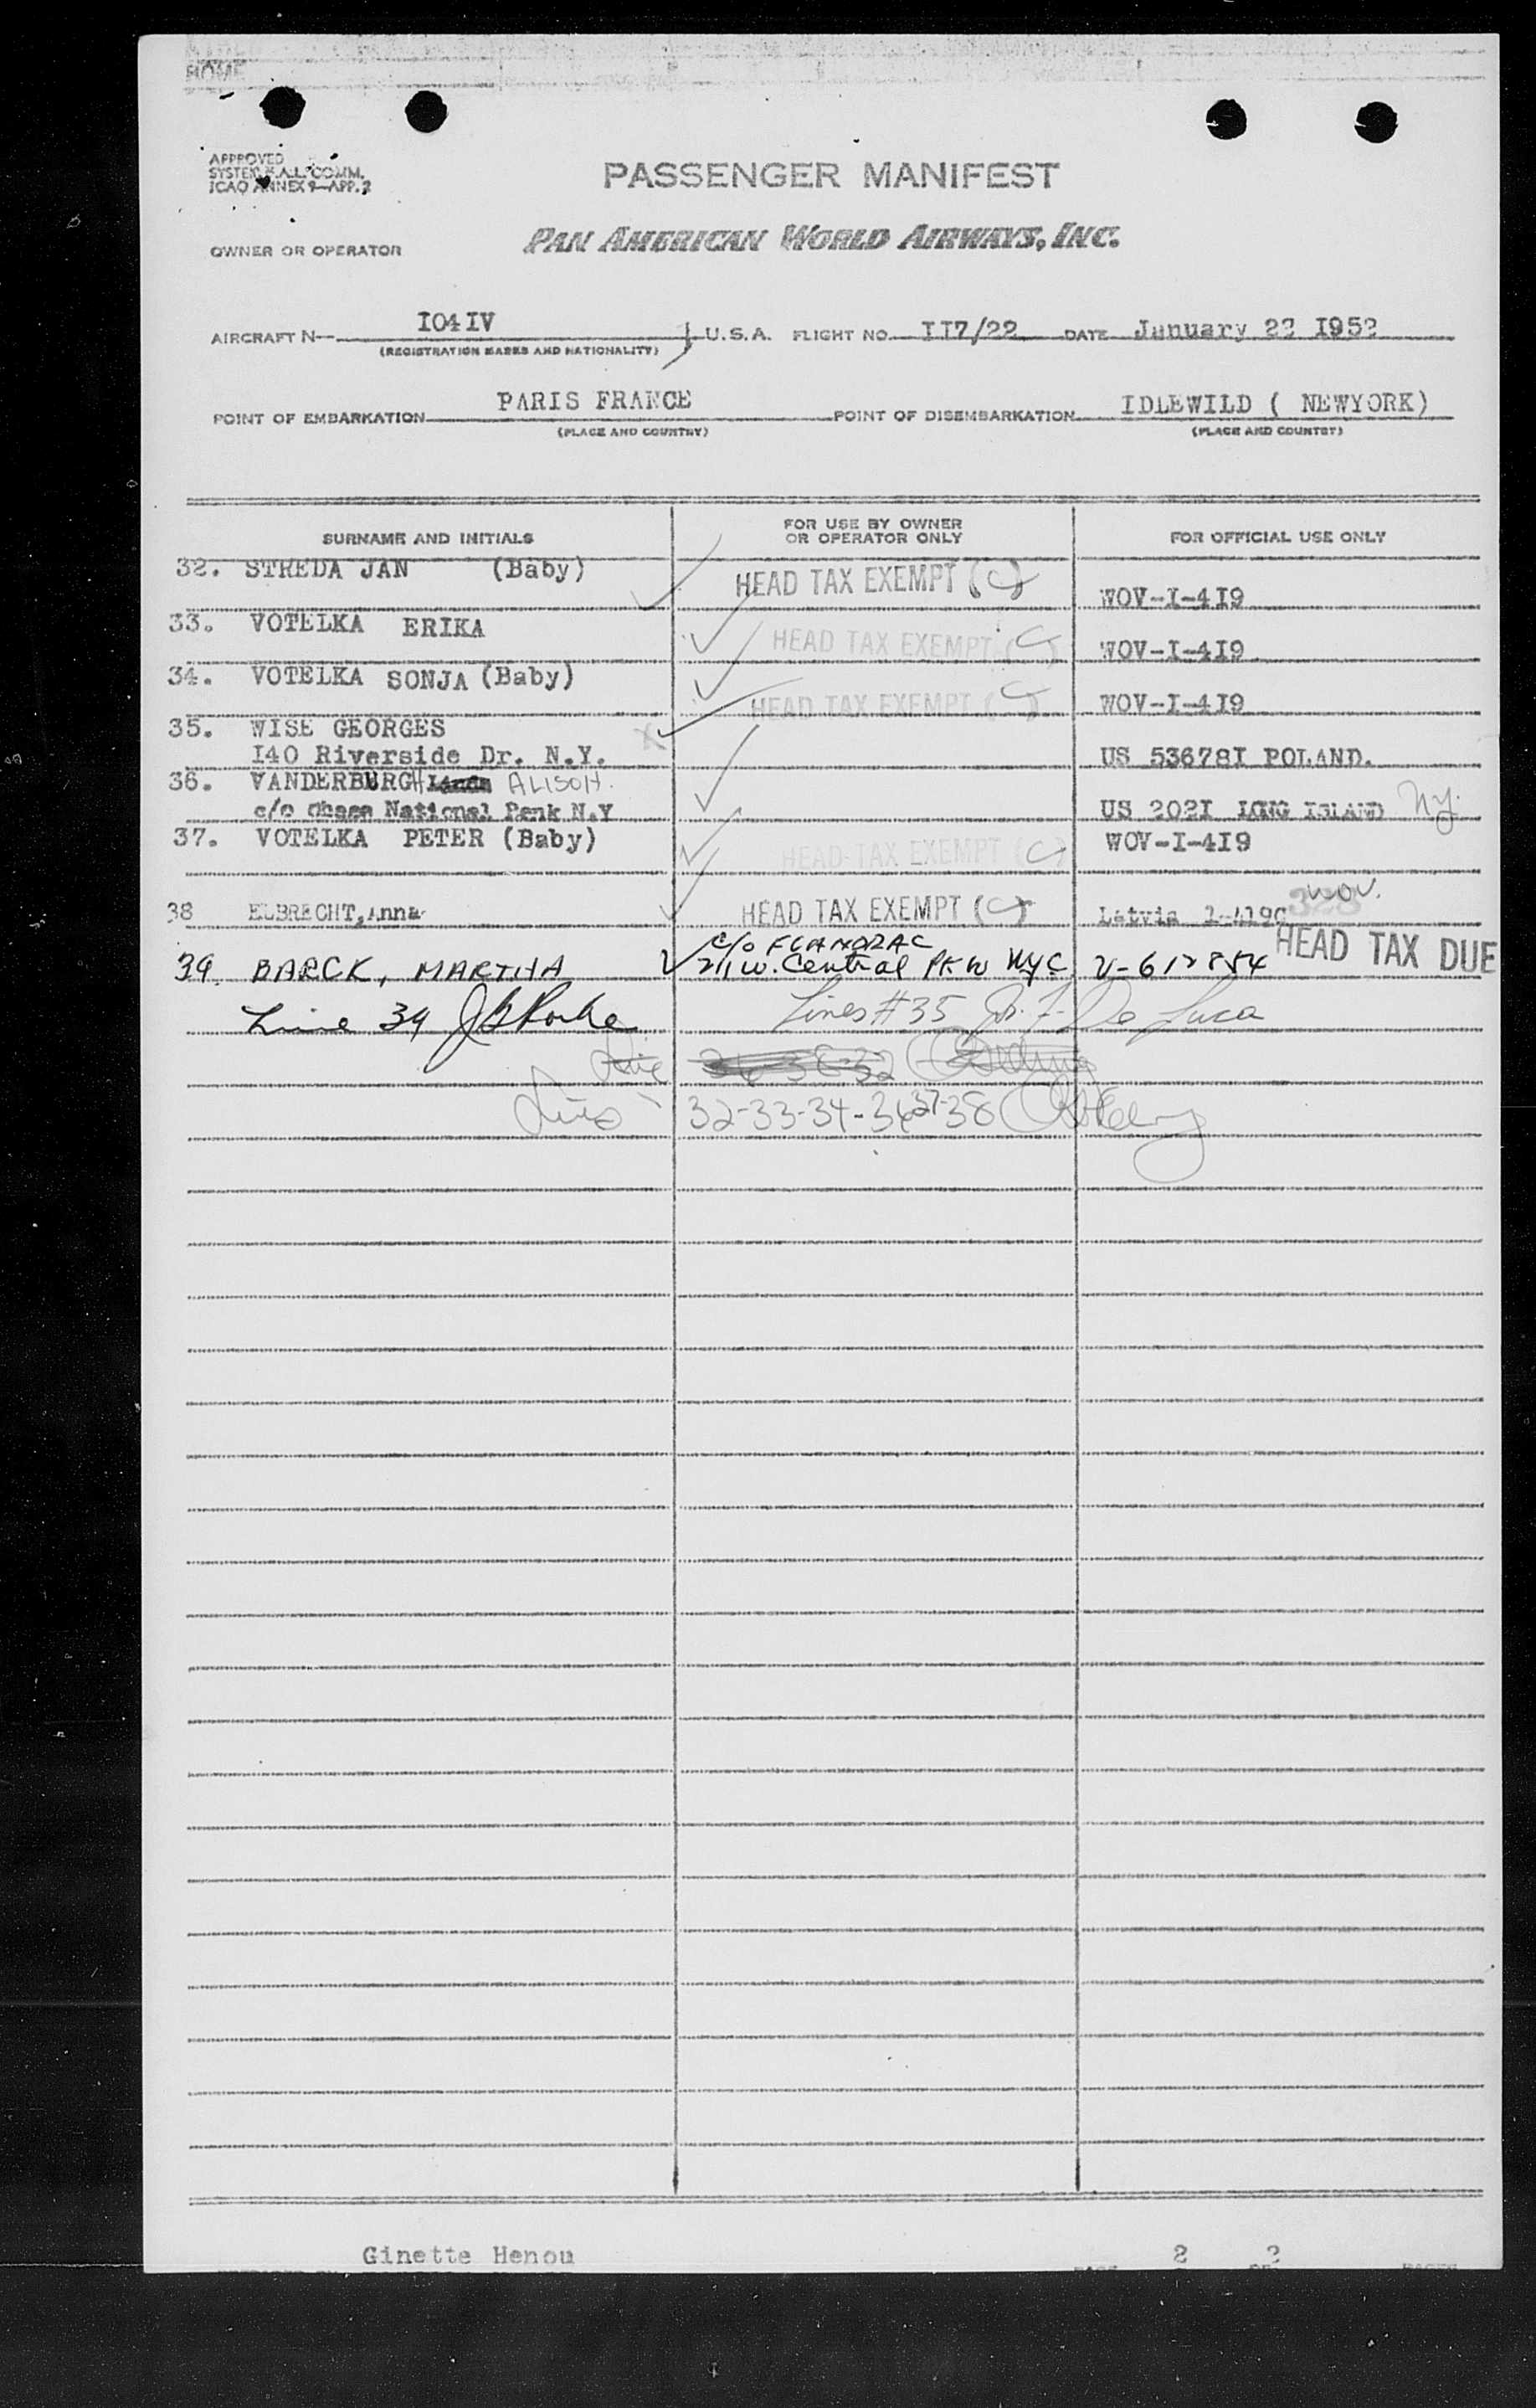 HOME
APPROVED
SYSTEM A.L. COMM.
ICAO ANNEX 9—APP. 2
PASSENGER MANIFEST
OWNER OR OPERATOR PAN AMERICAN WORLD AIRWAYS, INC.
AIRCRAFT N— I04IV U.S.A. FLIGHT NO. II7/22 DATE January 23 I952
(REGISTRATION MARKS AND NATIONALITY)
POINT OF EMBARKATION PARIS FRANCE POINT OF DISEMBARKATION IDLEWILD ( NEWYORK)
(PLACE AND COUNTRY) (PLACE AND COUNTRY)
SURNAME AND INITIALS FOR USE BY OWNER OR OPERATOR ONLY FOR OFFICIAL USE ONLY
32. STREDA JAN (Baby) HEAD TAX EXEMPT (C) WOV-I-4I9
33. VOTELKA ERIKA HEAD TAX EXEMPT (C) WOV-I-4I9
34. VOTELKA SONJA (Baby) HEAD TAX EXEMPT (C) WOV-I-4I9
35. WISE GEORGES
I40 Riverside Dr. N.Y. US 53678I POLAND.
36. VANDERBURGH ALISON.
c/o Chase National Bank N.Y US 202I LONG ISLAND N.Y.
37. VOTELKA PETER (Baby) HEAD TAX EXEMPT (C) WOV-I-4I9
38 ELBRECHT, Anna HEAD TAX EXEMPT (C) Latvia 1-419C WOV. 328
HEAD TAX DUE
39. BARCK, MARTHA c/o
211 W. Central PK W NYC V-612854
Line 39 Lines #35 De Luca
Lines 32-33-34-36-37-38
Ginette Henou 2 2
PAGE OF PAGES